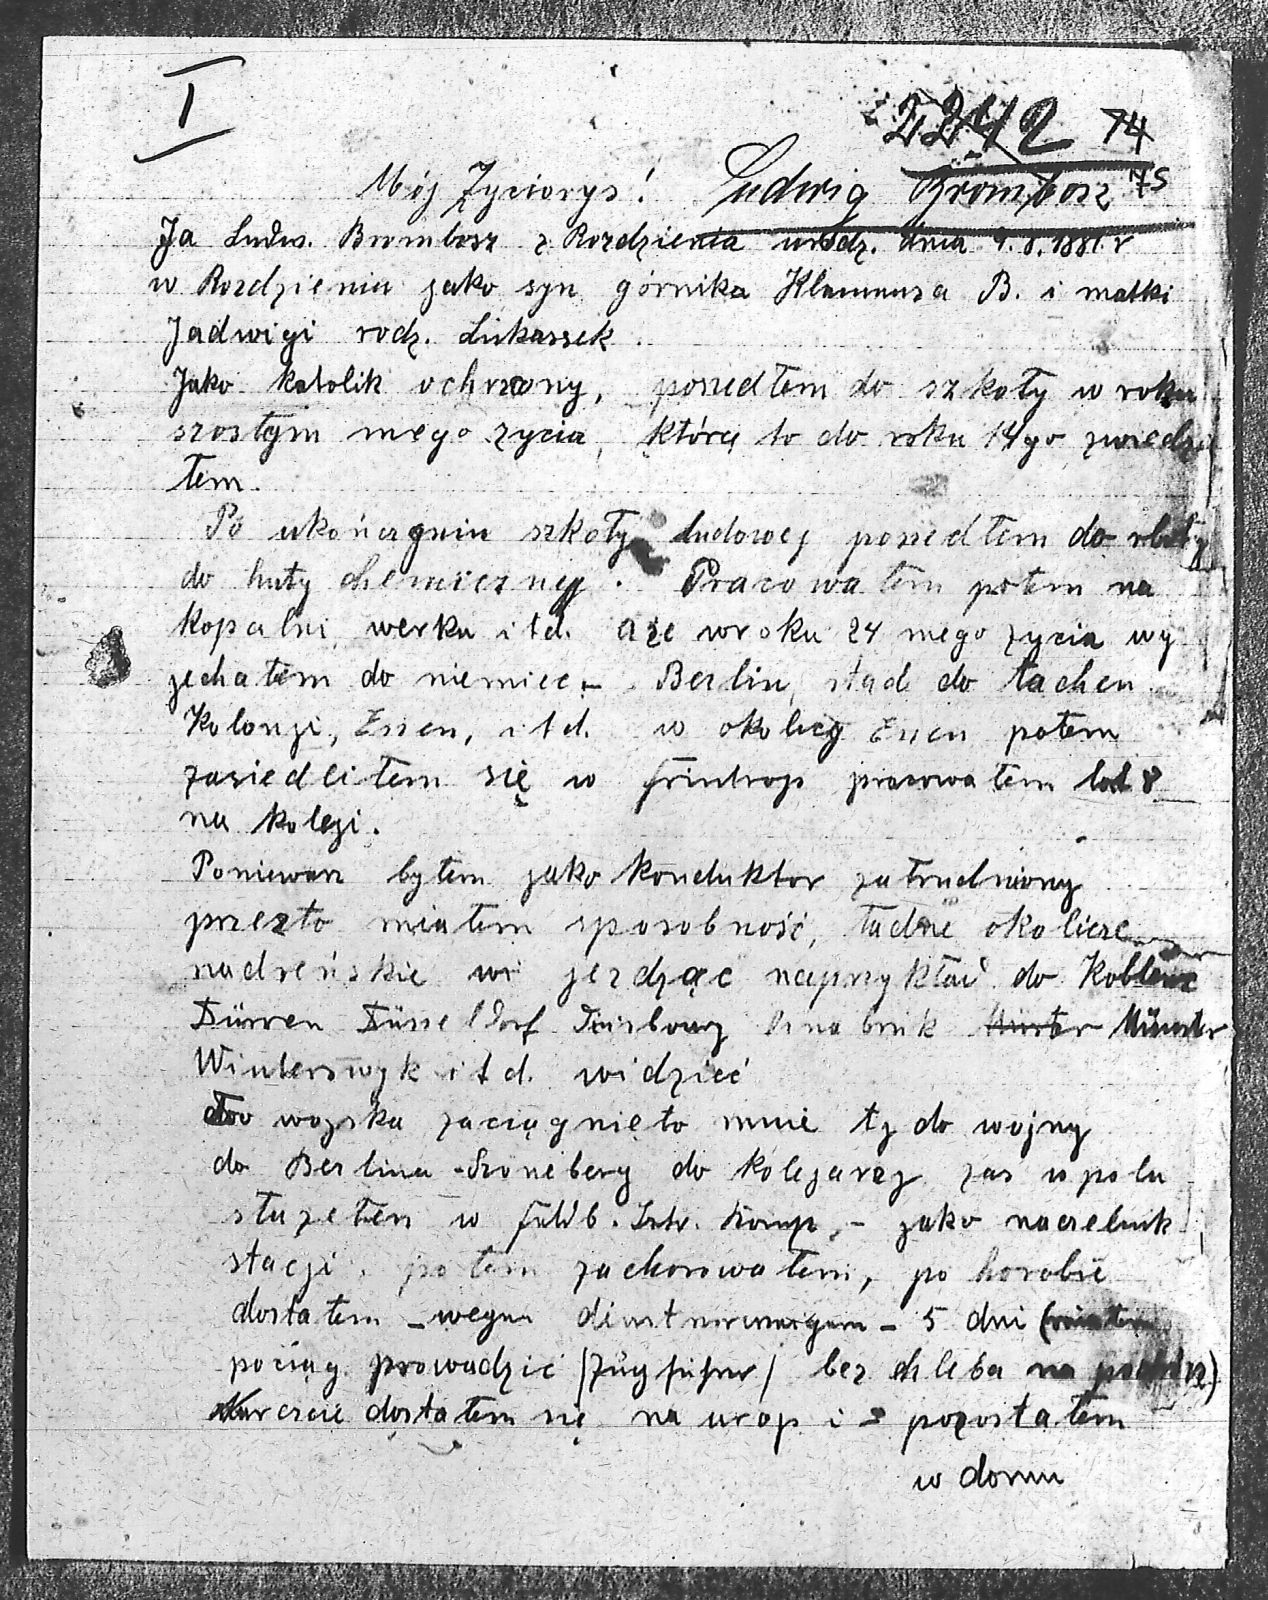 I
2242 74
Mój Życiorys! Ludwig Brombosz 75
Ja Ludw. Brombosz z Rozdzienia urodz. dnia 9.8.1881.r
w Rozdzieniu jako syn górnika Klemensa B. i matki
Jadwigi rodz. Lukassek.
Jako katolik ochrzony, posiedłem do szkoły w roku
szostym mego zycia, którą to do roku 14go zwiedza
łem.
Po ukończyniu szkoły ludowej posiedłem do
do huty chemicznej. Pracowałem potem na
kopalni, werku i td. aże w roku 24 mego zycia wy
jechałem do niemiec – Berlin, stąd do Aachen
Kolonji, Essen, i t d. w okolicy Essen potem
zasiedliłem się w Frintrop pracowałem
na koleji.
Poniewarz byłem jako konduktor zatrudniony
przezto miałem sposobność, ładne okolicze
nadreńskie wi jezdząc naprzykład do Koblenz
Dürren Düsseldorf Duisburg Osnabrik Münster
Winterswyk i t d. widzieć
do wojska zaciągnięto mnie tz do wojny
do Berlina-Szoneberg do kolejarzy zas w polu
słuzełem w Feldb. Komp. – jako naczelnik
stacji. potem zachorowałem, po horobie
dostałem – wegen – 5 dni (miałem
pociąg prowadzić /Zugführer/ bez chleba na
dostałem się na urop i pozostałem
w domu